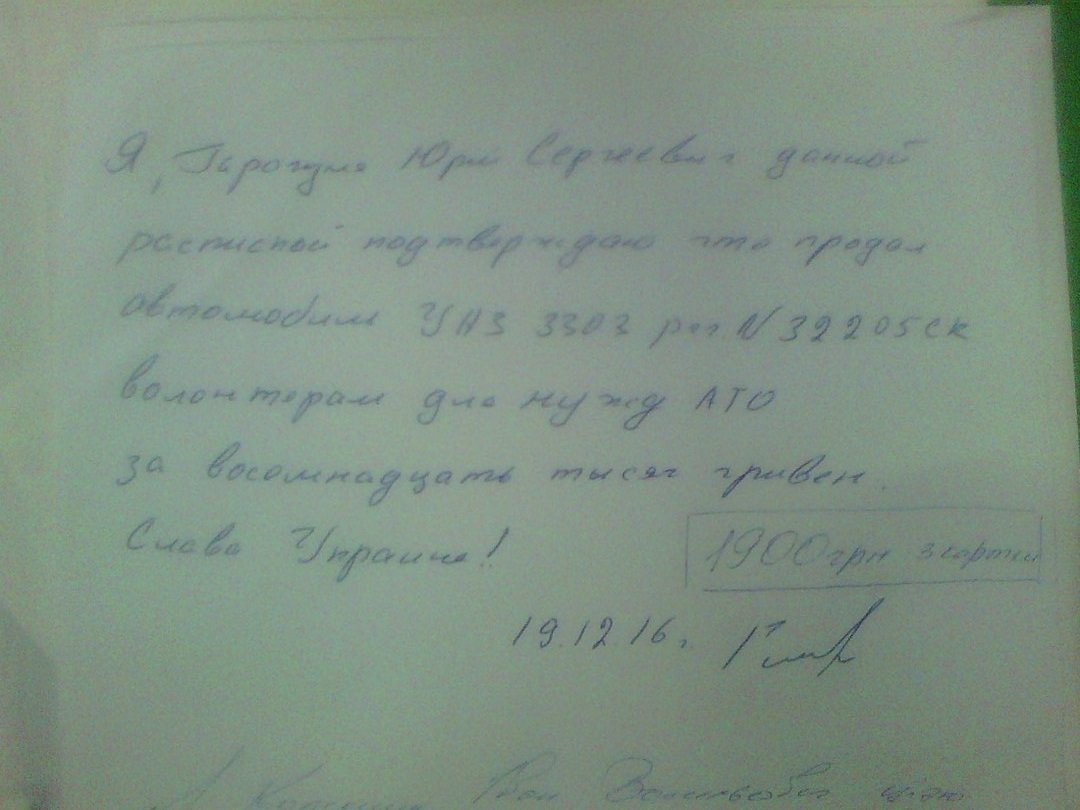 Я, Юрий Сергеевич данной
распиской подтверждаю что продал
автомобиль УАЗ 3303 рег. N 32205СК
волонтерам для нужд АТО
за восомнадцать тысяч гривен.
Слава Украине!
1900 грн з картки
19.12.16 г.